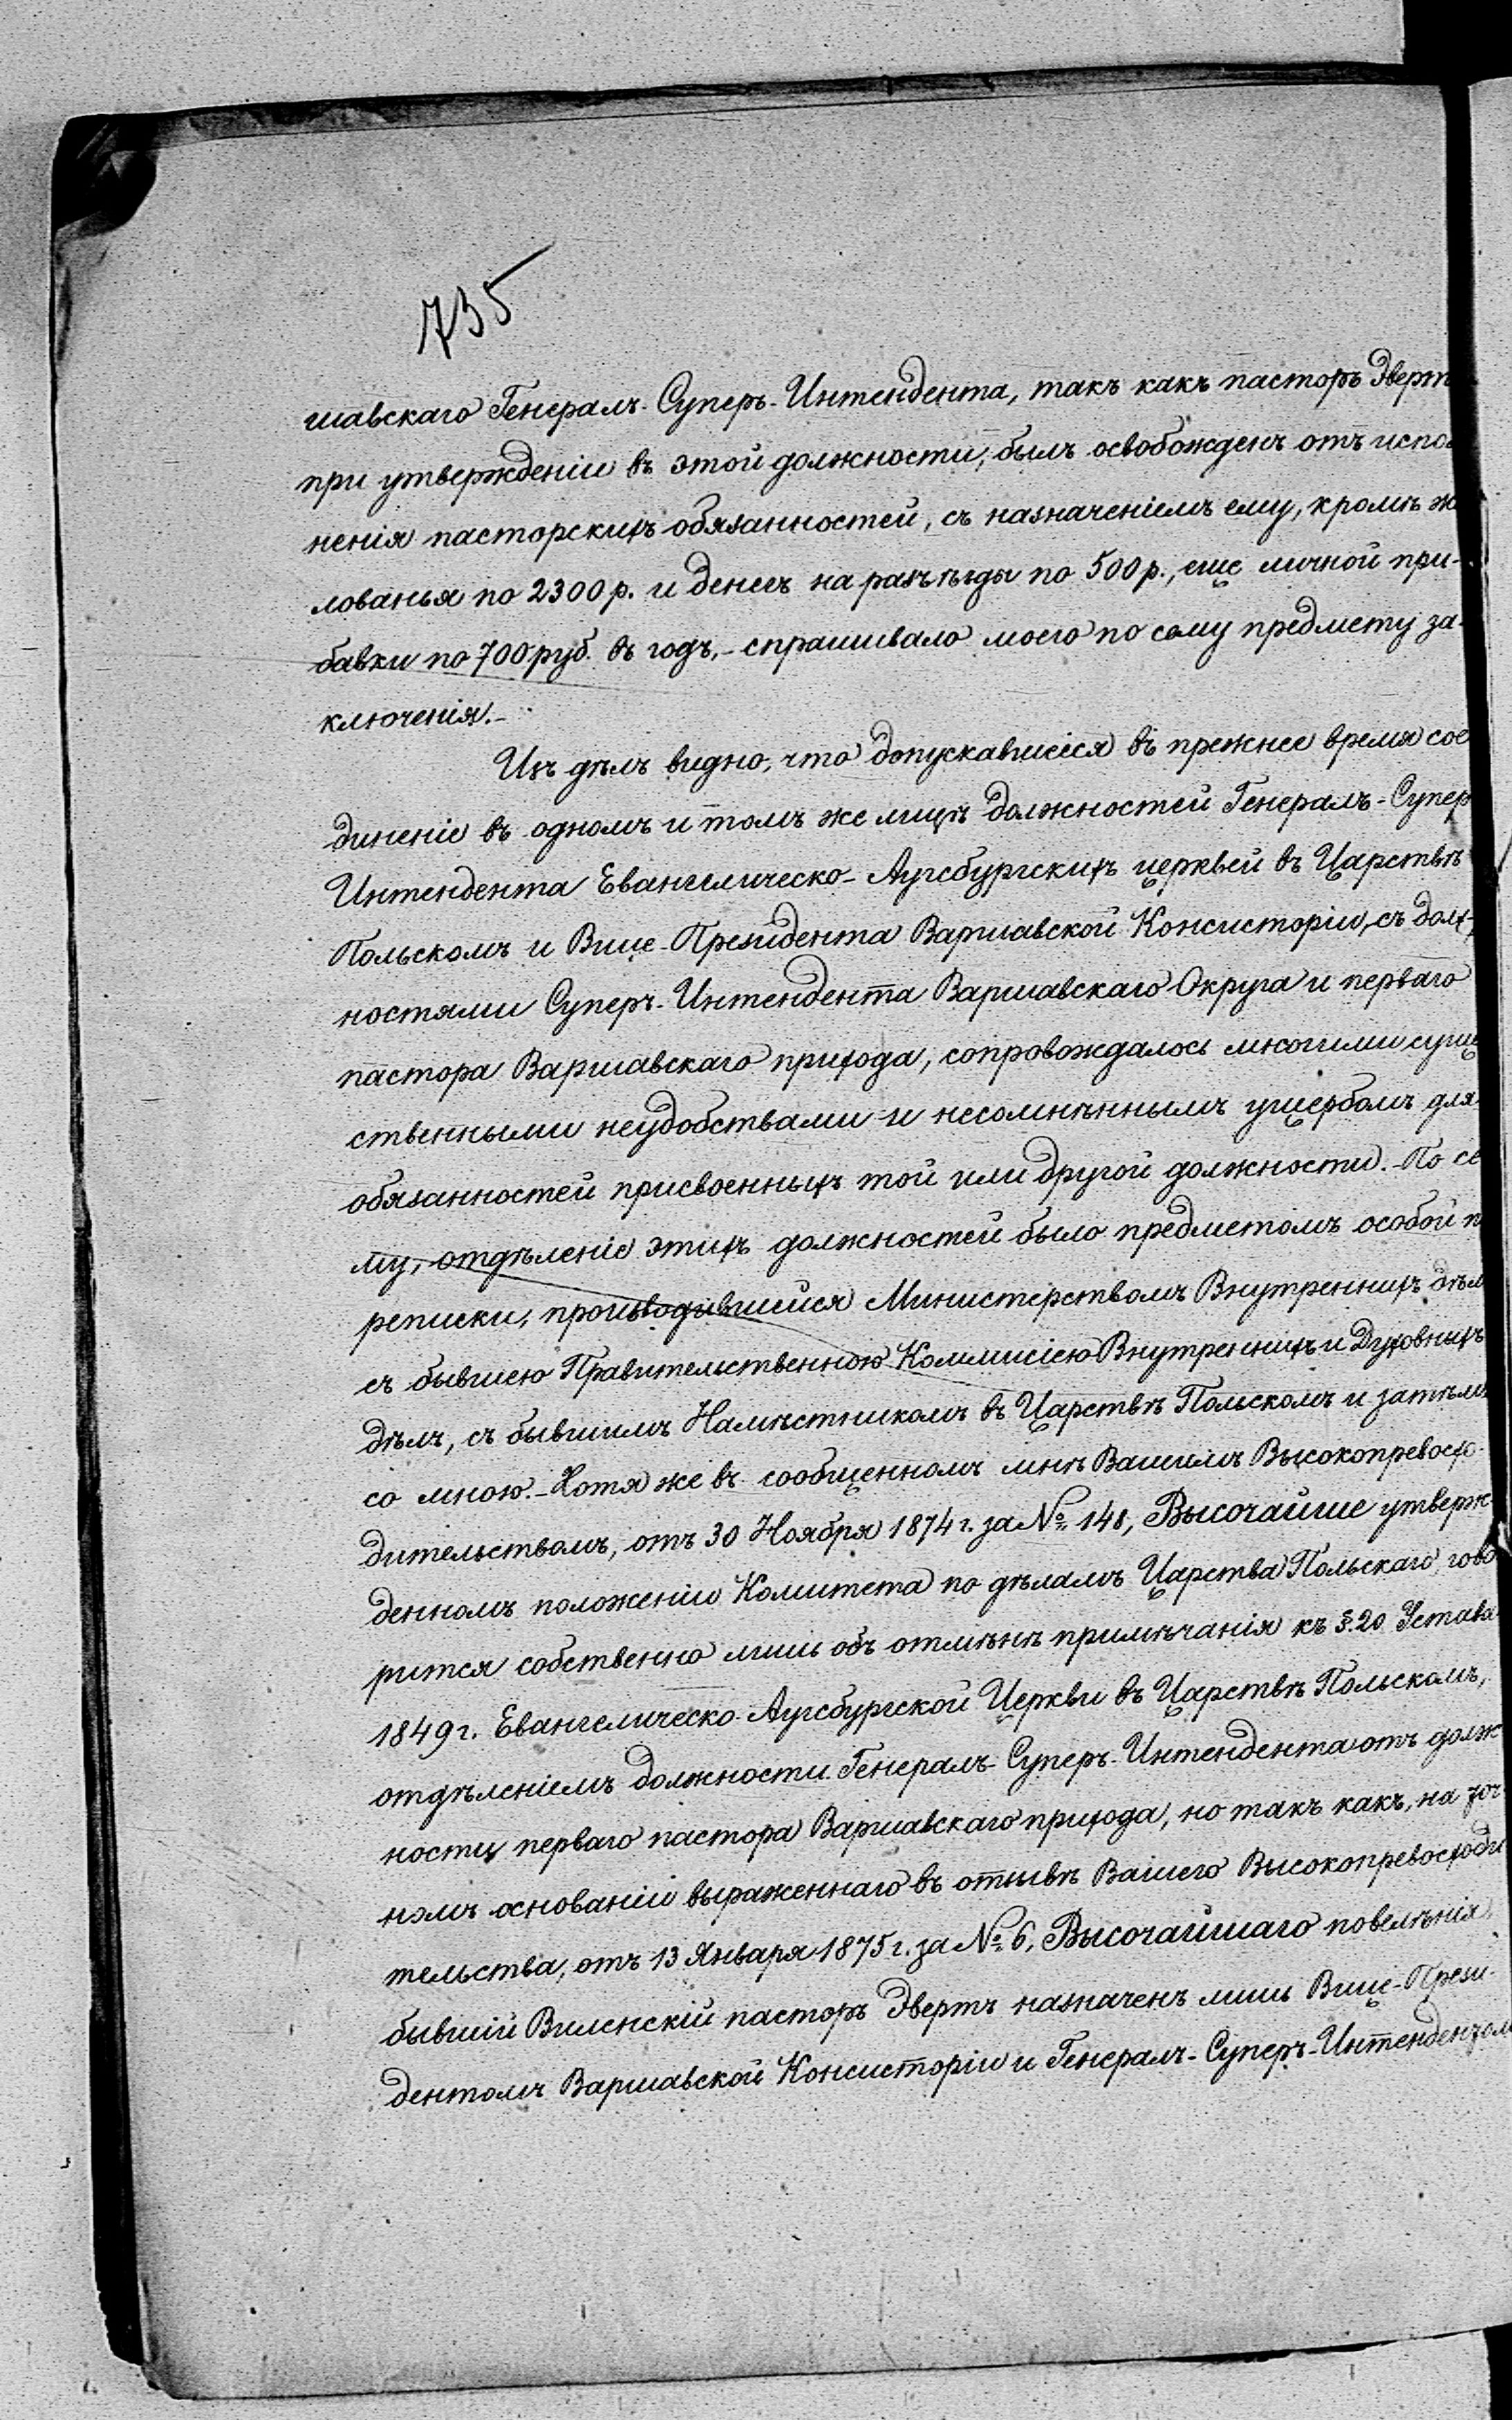 735
шавскаго Генералъ-Суперъ-Интендента, такъ какъ пасторъ Эверт
при утвержденіи въ этой должности, былъ освобожденъ отъ испол
ненія пасторскихъ обязанностей, съ назначеніемъ ему, кромѣ ж
лованья по 2300 р. и денегъ на разъѣзды по 500 р., еще личной при-
бавки по 700 руб. въ годъ,- спрашивало моего по сему предмету за-
ключенія.-
Изъ дѣлъ видно, что допускавшееся въ прежнее время сое
диненіе въ одномъ и томъ же лицѣ должностей Генералъ-Супер
Интендента Евангелическо-Аугсбургскихъ церквей въ Царствѣ
Польскомъ и Вице-Президента Варшавской Консисторіи, съ долж-
ностями Суперъ-Интендента Варшавскаго Округа и перваго
пастора Варшавскаго прихода, сопровождалось многими суще
ственными неудобствами и несомнѣннымъ ущербомъ для
обязанностей присвоенныхъ той или другой должности.- По се
му, отдѣленіе этихъ должностей было предметомъ особой п
реписки, производившейся Министерствомъ Внутреннихъ дѣл
съ бывшею Правительственною Коммисіею Внутреннихъ и Духовныхъ
дѣлъ, съ бывшимъ Намѣстникомъ въ Царствѣ Польскомъ и затѣмъ
со мною.- Хотя же въ сообщенномъ мнѣ Вашимъ Высокопревосхо-
дительствомъ, отъ 30 Ноября 1874 г. за № 148, Высочайше утверж-
денномъ положеніи Комитета по дѣламъ Царства Польскаго, гово
рится собственно лишь объ отмѣнѣ примѣчанія къ §. 20 Устава
1849 г. Евангелическо-Аугсбургской Церкви въ Царствѣ Польскомъ,
отдѣленіемъ должности Генералъ-Суперъ-Интендента отъ долж
ности перваго пастора Варшавскаго прихода, но такъ какъ, на точ-
номъ основаніи выраженнаго въ отзывѣ Вашего Высокопревосходи
тельства, отъ 13 Января 1875 г. за № 6, Высочайшаго повелѣнія,
бывшій Виленскій пасторъ Эвертъ назначенъ лишь Вице-Прези-
дентомъ Варшавской Консисторіи и Генералъ-Суперъ-Интендентом